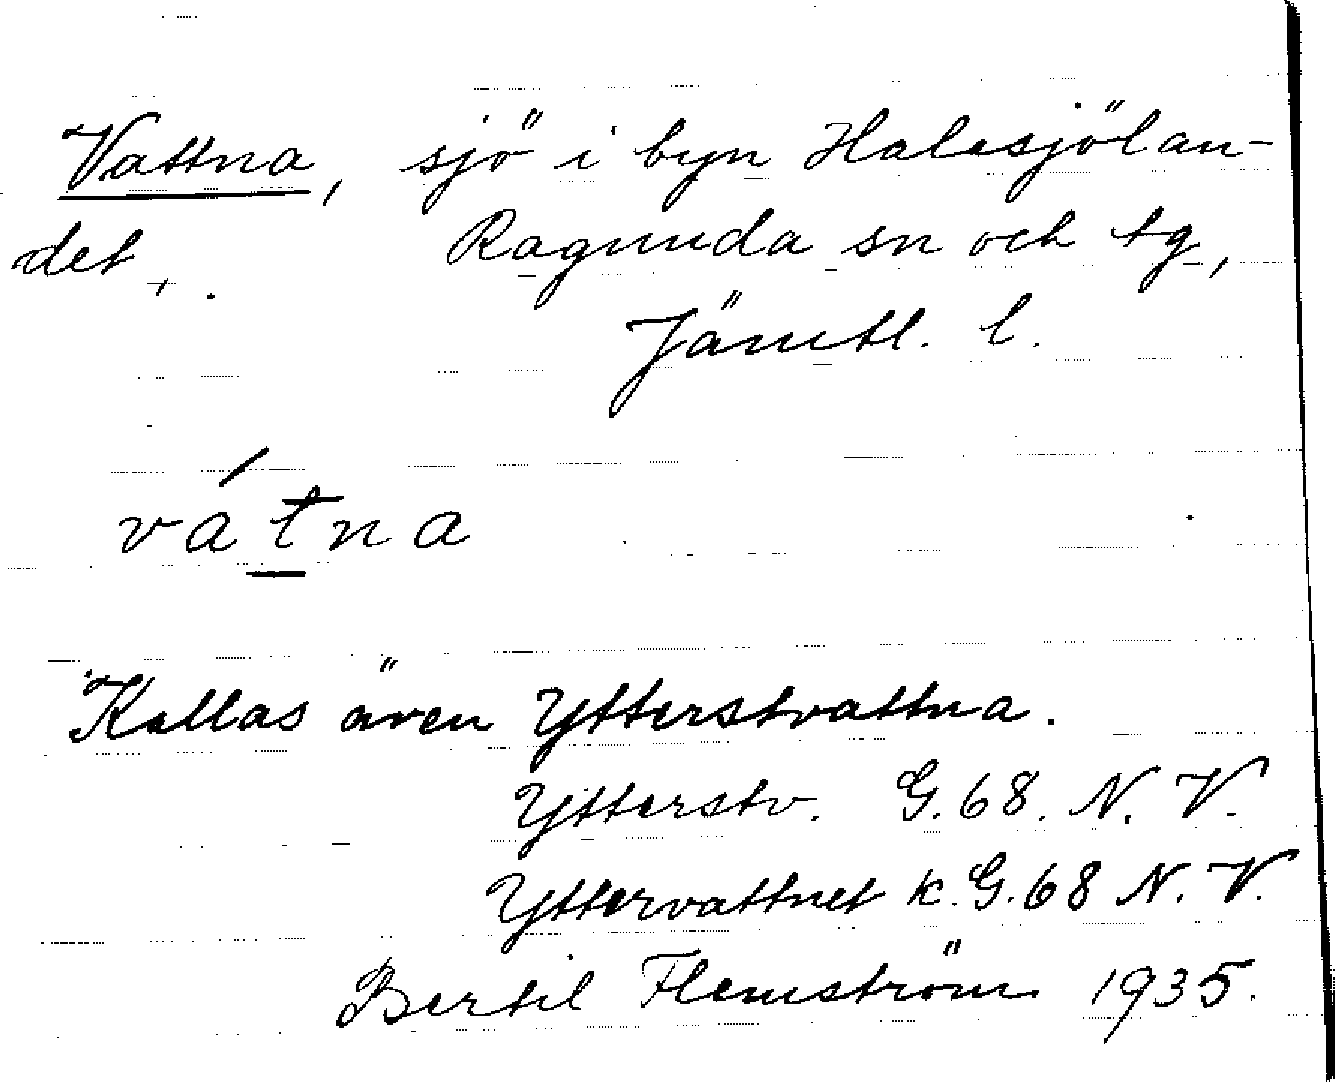 Vattna, sjö i byn Halasjölan-
det, . Ragunda sn och tg,
Jämtl. l.
vátna
Kallas även Ytterstvattna.
Ytterstv. G. 68. N. V.
Yttervattnet k. G. 68 N. V.
Bertil Flemström 1935.